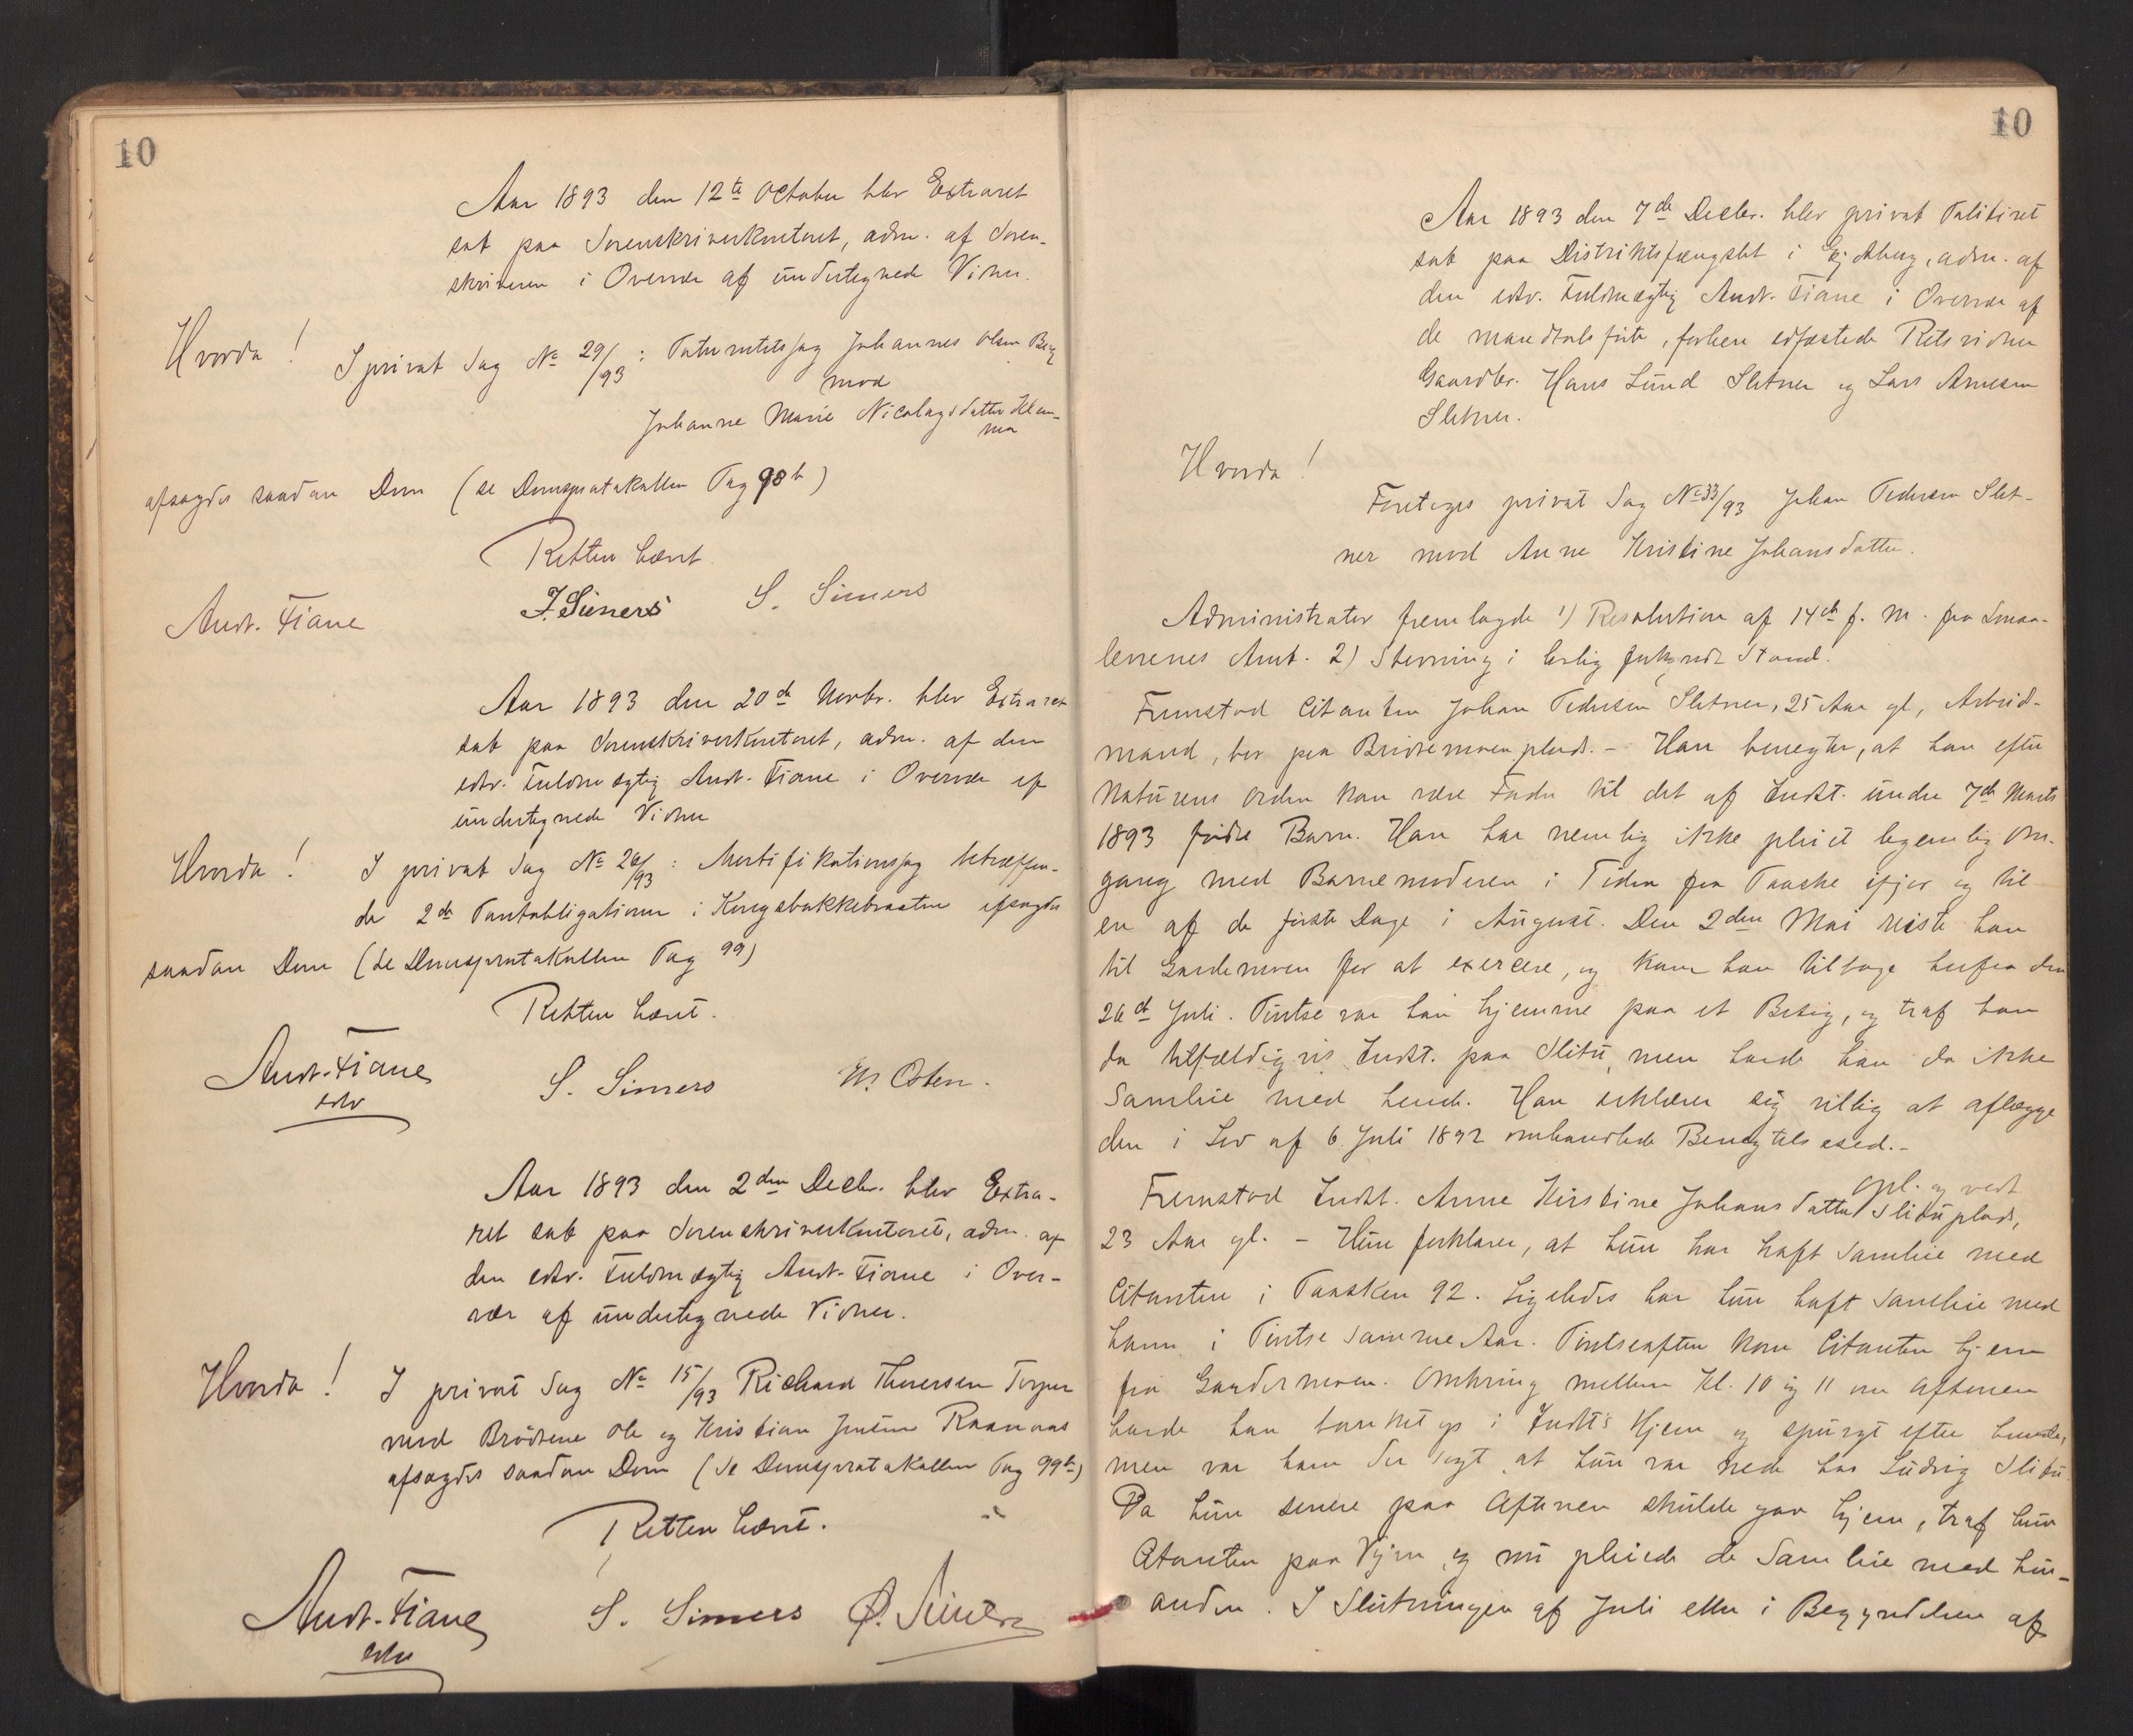 10
Aar 1893 den 12te October blev Extraret
sat paa Sorenskriverkontoret, adm. af Soren-
skriveren i Overvær af undertegnede Vidner.
Hvorda!
I privat Sag No 29/93: Paternitetssag Johannes Olsen Berg
mod
Johanne Marie Nicolaysdatter
afsagdes saadan Dom (se Domsprotokollen Pag 98b)
Retten hævet.
Andr. Fiane J. Simers S. Simers
Aar 1893 den 20de Novbr. blev Extraret
sat paa Sorenskriverkontoret, adm. af den
edsv. Fuldmægtig Andr. Fiane i Overvær af
undertegnede Vidner
Hvorda! I privat Sag No 26/93: Mortifikationssag betræffen-
de 2de Pantobligationer i Kongsbakkebraaten afsagdes
saadan Dom (se Domsprotokollen Pag 99)
Retten hævet.
Andr. Fiane S. Simers
edsv
Aar 1893 den 2den Decbr. blev Extra-
ret sat paa Sorenskriverkontoret, adm. af
den edsv. Fuldmægtig Andr. Fiane i Over-
vær af undertegnede Vidner.
Hvorda! I privat Sag No 15/93 Richard Thoresen Torper
mod Brødrene Ole og Kristian Jensen Raanaas
afsagdes saadan Dom (se Domsprotokollen Pag 99b)
Retten hævet.
Andr. Fiane S. Simers
edsv
10
Aar 1893 den 7de Decbr. blev privat Politiret
sat paa Distriktsfængslet i Eidsberg, adm. af
den edsv. Fuldmægtig Andr. Fiane i Overvær af
de mandtalsførte, forhen edfæstede Retsvidner
Gaardbr. Hans Lund Sletner og Lars Arnesen
Sletner.
Hvorda!
Foretoges privat Sag No 33/93 Johan Pedersen Slet-
ner mod Anne Kristine Johansdatter.
Administrator fremlagde 1) Resolution af 14de f. M. fra Smaa-
lenenes Amt. 2) Stevning i lovlig forkyndt Stand.
Fremstod Citanten Johan Pedersen Sletner, 25 Aar gl, Arbeid-
mand, bor paa plads. - Han benegter, at han efter
Naturens Orden kan være Fader til det af Indst. under 7de Marts
1893 fødte Barn. Han har nemlig ikke pleiet legemlig Om-
gang med Barnemoderen i Tiden fra Paaske ifjor og til
en af de første Dage i August. Den 2den Mai reiste han
til Gardermoen for at exercere, og kom han tilbage herfra den
26de Juli. Pintse var han hjemme paa et Besøg, og traf han
da tilfældigvis Indst. paa Slitu, men havde han da ikke
Samleie med hende. Han erklærer sig villig at aflægge
den i Lov af 6 Juli 1892 omhandlede Benegtelsesed. -
opl. og vedt
Fremstod Indst. Anne Kristine Johansdatter Slituplads,
23 Aar gl. - Hun forklarer, at hun har haft Samleie med
Citanten i Paasken 92. Ligeledes har hun haft Samleie med
ham i Pintse samme Aar. Pintseaften kom Citanten hjem
fra Gardermoen. Omkring mellem Kl. 10 og 11 om Aftenen
havde han banket op i Indst's Hjem og spurgt efter hende,
men var ham der sagt at hun var nede hos Ludvig Slitu
Da hun senere paa Aftenen skulde gaa hjem, traf hun
Citanten paa Veien og nu pleiede de Samleie med hin-
anden. I Slutningen af Juli eller i Begyndelsen af